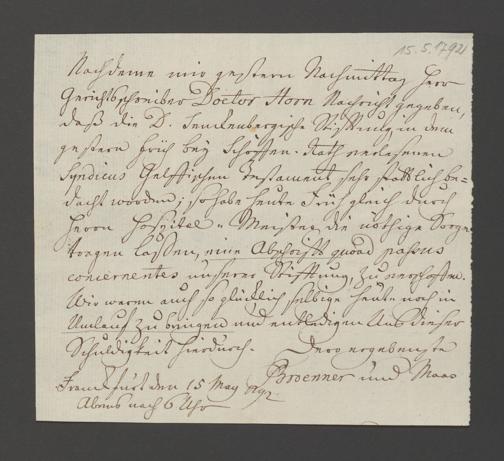 15.5.1792
Nachdeme mir gestern Nachmittag Herr
Gerichtsschreiber Doctor Horn Nachricht gegeben,
daß die D. Senckenbergische Stifftung in dem
gestern früh bey Schöffen-Rath verlesenen
Syndicus Testament sehr stattlich be=
dacht worden; so habe heute früh gleich durch
Herrn Hospital-Meister die nöthige Sorge
tragen lassen, eine Abschrifft quoad passus
concernentes unserer Stifftung, zu verschaffen.
Wir waren auch so glücklich selbige heute noch in
Umlauf zu bringen und entledigen Uns dieser
Schuldigkeit hierdurch. Dero ergebenste
Broenner und Maas
Franckfurt den 15 May 1792.
Abends nach 6 Uhr